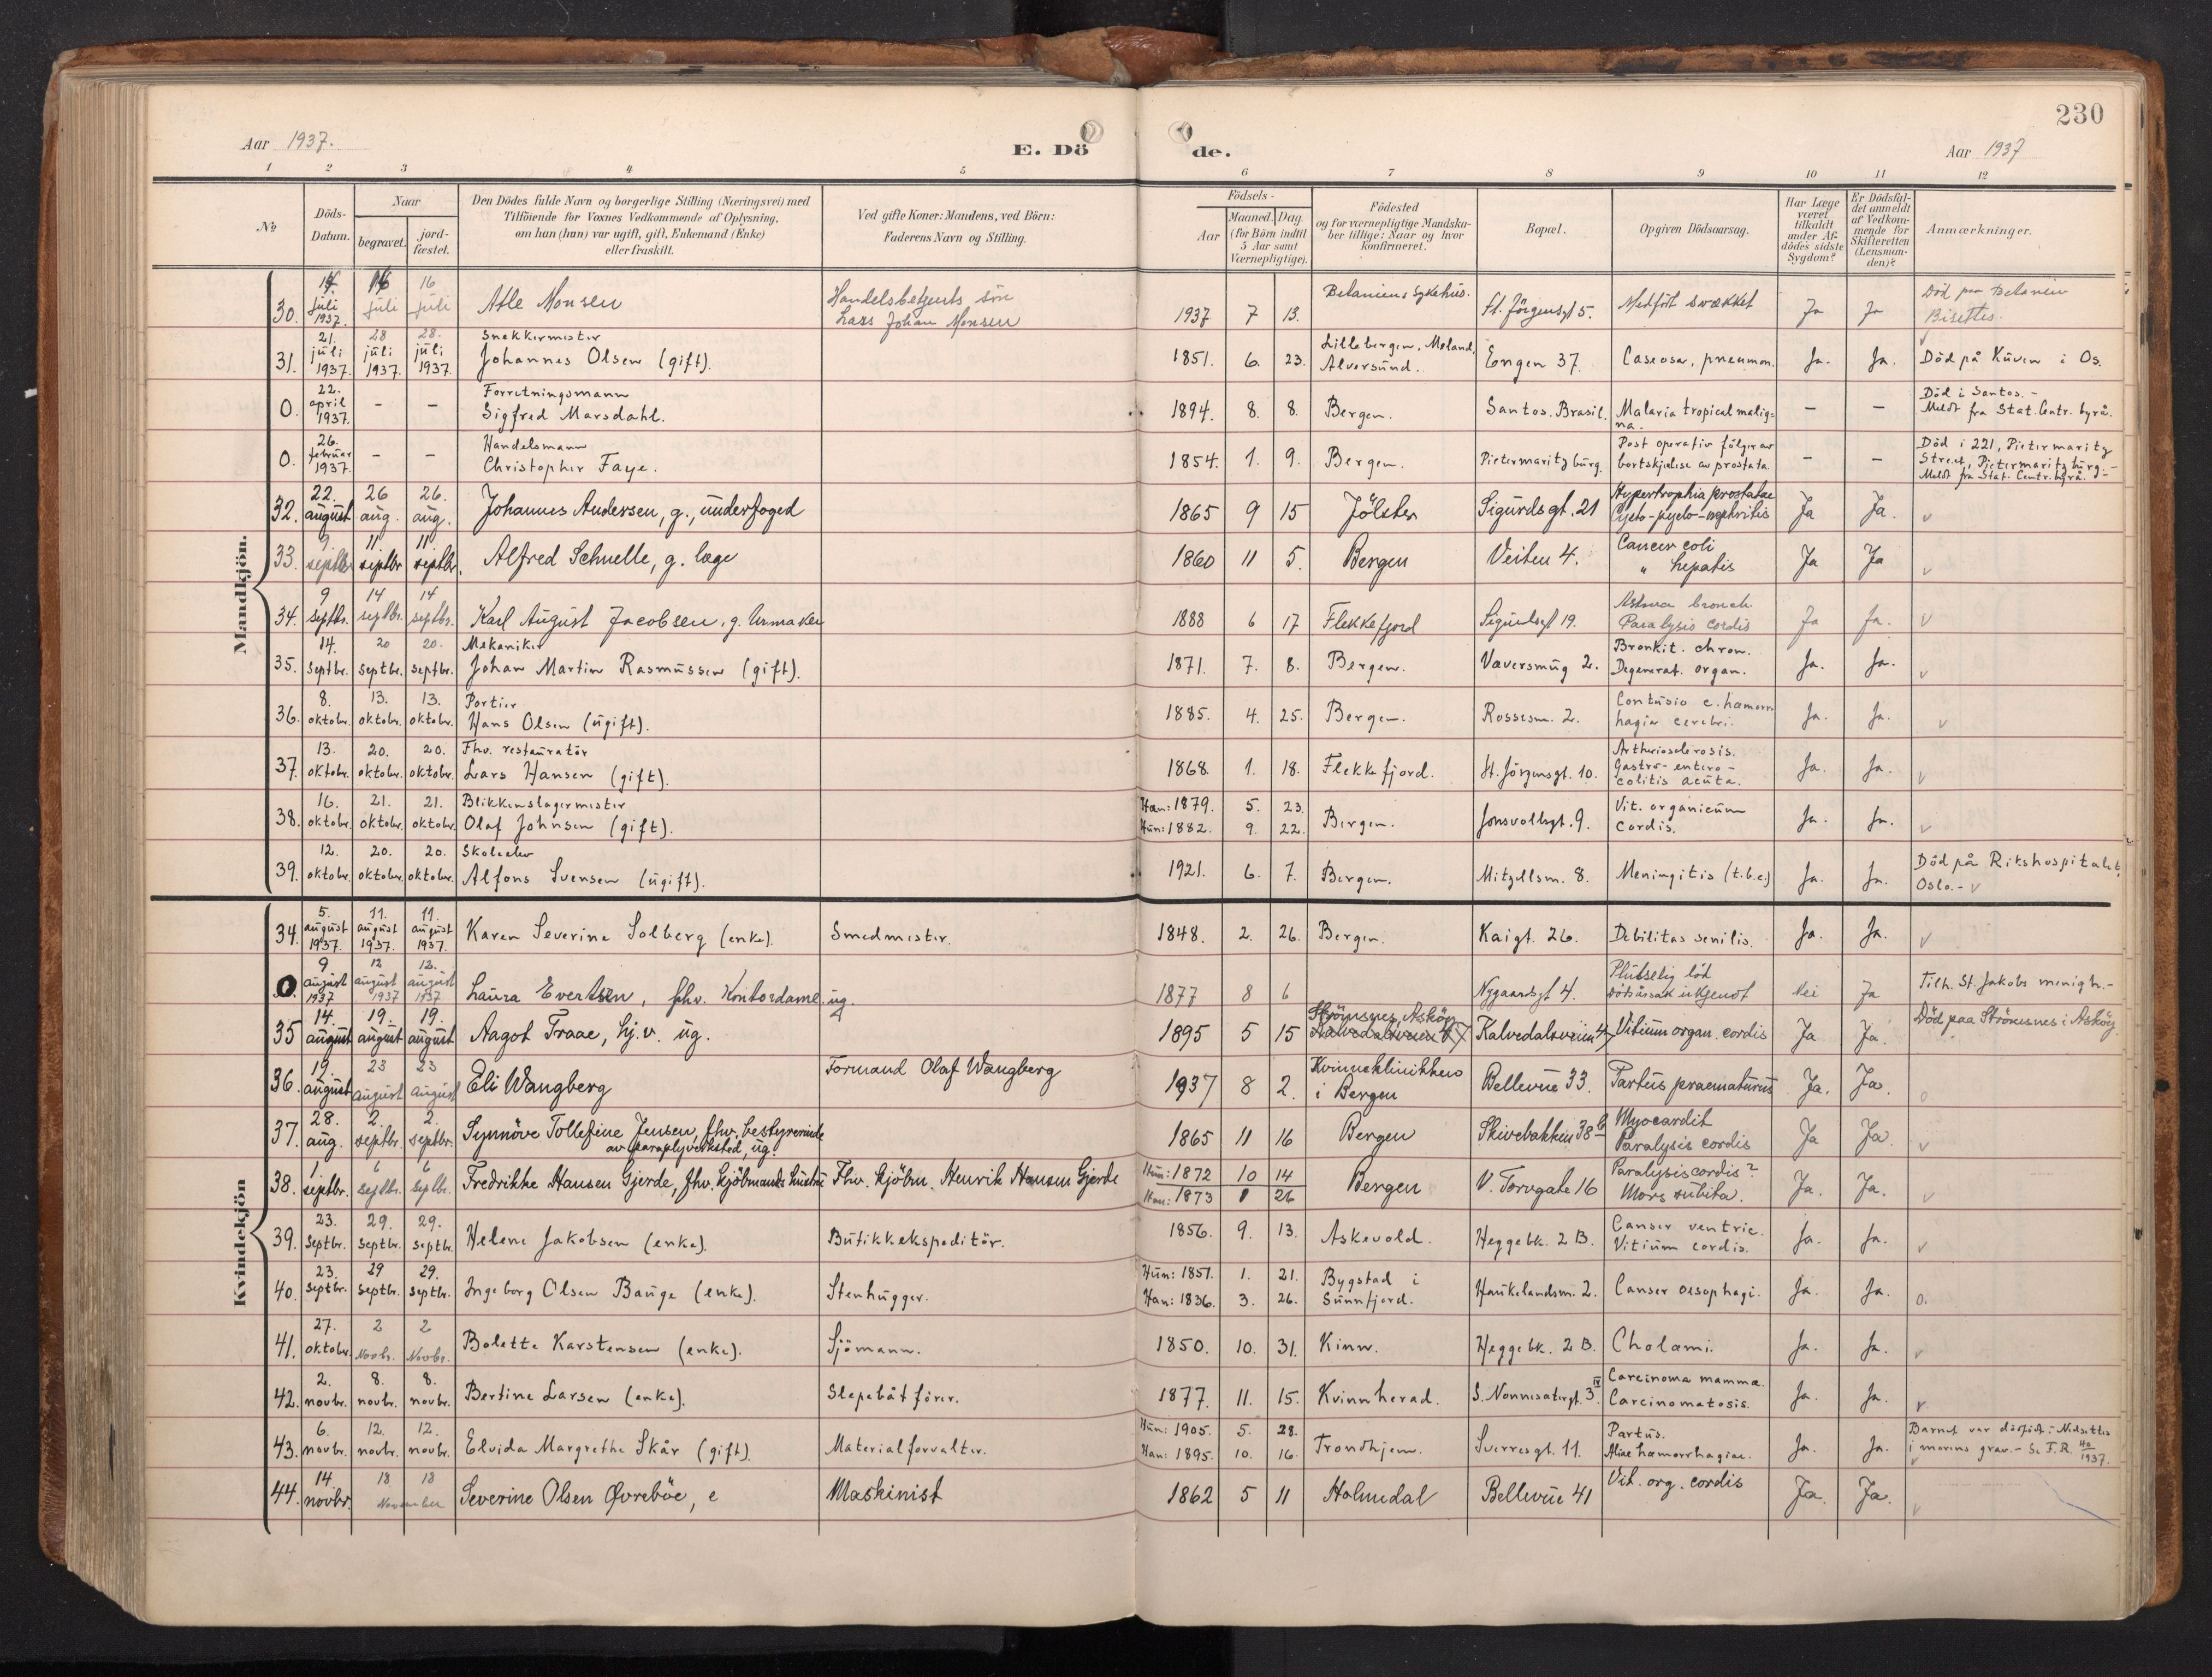 230
Aar 1937.
E. Dö de.
Aar 1937
1 2 3 4 5 6 7 8 9 10 11 12
№
Döds-Datum.
Naar
begravet.
jord-fæstet.
Den Dödes fulde Navn og borgerlige Stilling (Næringsvei) med
Tilföiende for Voxnes Vedkommende af Oplysning,
om han (hun) var ugift, gift, Enkemand (Enke)
eller fraskilt.
Ved gifte Koner: Mandens, ved Börn:
Faderens Navn og Stilling.
Födsels-
Aar
Maaned. Dag.
(for Börn indtil
5 Aar samt
Værnepligtige).
Födested
og for værnepligtige Mandska-
ber tillige: Naar og hvor
konfirmeret.
Bopæl.
Opgiven Dödsaarsag.
Har Læge
været
tilkaldt
under Af-
dödes sidste
Sygdom?
Er Dödsfal-
det anmeldt
af Vedkom-
mende for
Skifteretten
(Lensman-
den)?
Anmærkninger.
Mandkjön.
30. 14. juli 1937. 16 juli 16 juli Atle Monsen Handelsbetjents søn Lars Johan Monsen 1937 7 13. Betaniens Sykehus. St. Jörgensgt 5. Medfödt svækket Ja Ja Död paa Betanien Bisettes.
31. 21. juli 1937. 28 juli 1937. 28. juli 1937. Snekkermester Johannes Olsen (gift). 1851. 6. 23. Lillebergen, Meland, Alversund. Engen 37. Caseosa, pneumon. Ja. Ja. Död på Kuven i Os.
0. 22. april 1937. – – Forretningsmann Sigfred Marsdahl. 1894. 8. 8. Bergen. Santos. Brasil. Malaria tropical malig= na. – – Död i Santos. – Meldt fra Stat. Centr. byrå.
0. 26. februar 1937. – – Handelsmann Christopher Faye. 1854. 1. 9. Bergen. Pietermaritzburg. Post operativ fölger av bortskjælse av prostata. – – Död i 221, Pietermaritz Street, Pietermaritzburg. – Meldt fra Stat. Centr. byrå. –
32. 22. august 26 aug. 26. aug. Johannes Andersen, g., underfoged 1865 9 15 Jölster Sigurdsgt. 21 Hypertrophia prostatae Cysto-pyelo-nephritis Ja Ja. v
33. 9 septbr 11. septbr 11. septbr. Alfred Schnelle, g. læge 1860 11 5. Bergen Veiten 4. Cancer coli " hepatis Ja Ja v
34. 9 septbr. 14 septbr. 14 septbr. Karl August Jacobsen, g. Urmaker 1888 6 17 Flekkefjord Sigurdsgt 19. Astma bronch. Paralysis cordis Ja Ja. v
35. 14. septbr. 20 septbr. 20. septbr. Mekaniker Johan Martin Rasmussen (gift). 1871. 7. 8. Bergen. Vaversmug 2. Bronkit. chron. Degenerat. organ. Ja. Ja. v
36. 8. oktobr. 13. oktobr. 13. oktobr. Portier Hans Olsen (ugift). 1885. 4. 25. Bergen. Rosesm. 2. Contusio c. hæmorr hagia cerebri. Ja. Ja. v
37. 13. oktobr. 20. oktobr. 20. oktobr. Fhv. restauratör Lars Hansen (gift). 1868. 1. 18. Flekkefjord. St. Jörgensgt. 10. Artheriosclerosis. Gastro-entero- colitis acuta. Ja. Ja. v
38. 16. oktobr. 21. oktobr. 21. oktobr. Blikkenslagermester Olaf Johnsen (gift). Han: 1879. 5. 23. Hun: 1882. 9. 22. Bergen. Jonsvollsgt. 9. Vit. organicum cordis. Ja. Ja. v
39. 12. oktobr. 20. oktobr. 20. oktobr. Skoleelev Alfons Svensen (ugift). 1921. 6. 7. Bergen. Mitzellsm. 8. Meningitis (t.b.c.) Ja. Ja. Död på Rikshospitalet, Oslo. – v
Kvindekjön
34. 5. august 1937. 11. august 1937. 11. august 1937. Karen Severine Solberg (enke). Smedmester. 1848. 2. 26. Bergen. Kaigt. 26. Debilitas senilis. Ja. Ja. v
0. 9 august 1937 12 august 1937 12. august 1937 Laura Evertsen, fhv. Kontordame. ug. 1877 8 6 Nygaardsgt 4. Plutselig död Dödsårsak ukjendt Nei Ja Tilh. St. Jakobs menigh. –
35 14. august 19. august 19. august Aagot Traae, hj.v. ug. 1895 5 15 Strömsnes, Asköy Kalvedalsveien 47 Kalvedalsveien 47 Vitium organ. cordis Ja Ja. Död paa Strömsnes i Asköy.
36. 19. august 23 august 23 august Eli Wangberg Formand Olaf Wangberg 1937 8 2. Kvinneklinikken i Bergen Bellevue 33. Partus praematurus Ja. Ja. o
37. 28. aug. 2. septbr. 2. septbr. Synnöve Tollefine Jensen, fhv. bestyrerinde av paraplyverksted, ug. 1865 11 16 Bergen Skivebakken 38 b Myocardit Paralysis cordis Ja Ja. v
38. 1. septbr. 6 septbr. 6 septbr. Fredrikke Hansen Gjerde, fhv. kjöbmands hustru Fhv. kjöbm. Henrik Hansen Gjerde Hun: 1872 10 14 Han: 1873 1 26 Bergen V. Torvgate 16 Paralysis cordis? Mors subita. Ja. Ja. v
39. 23. septbr. 29. septbr. 29. septbr. Helene Jakobsen (enke). Butikkekspeditör. 1856. 9. 13. Askevold. Heggebk. 2 B. Canser ventric. Vitium cordis. Ja. Ja. v
40. 23. septbr. 29 septbr. 29. septbr. Ingeborg Olsen Bauge (enke). Stenhugger. Hun: 1851. 1. 21. Han: 1836. 3. 26. Bygstad i Sunnfjord. Haukelandsm. 2. Canser oesophagi. Ja. Ja. o.
41. 27. oktobr. 2 Novbr. 2 Novbr. Bolette Karstensen (enke). Sjömann. 1850. 10. 31. Kinn. Heggebk. 2 B. Cholæmi. Ja. Ja. v
42. 2. novbr. 8. novbr. 8. novbr. Bertine Larsen (enke). Slepebåtförer. 1877. 11. 15. Kvinnherad. S. Nonnesætergt. 3 IV Carcinoma mamma. Carcinomatosis. Ja. Ja. v
43. 6. novbr. 12. novbr. 12. novbr. Elvida Margrethe Skår (gift). Materialforvalter. Hun: 1905. 5. 28. Han: 1895. 10. 16. Trondhjem. Sverresgt. 11. Partus. Aliae hæmorrhagiae. Ja. Ja. Barnet var dödfödt. – Nedsettes i morens grav. – Se F.R. 40/1937. v
44. 14. novbr. 18 18 November Severine Olsen Øvreböe, e Maskinist 1862 5 11 Holmedal Bellevue 41 Vit. org. cordis Ja. Ja. v